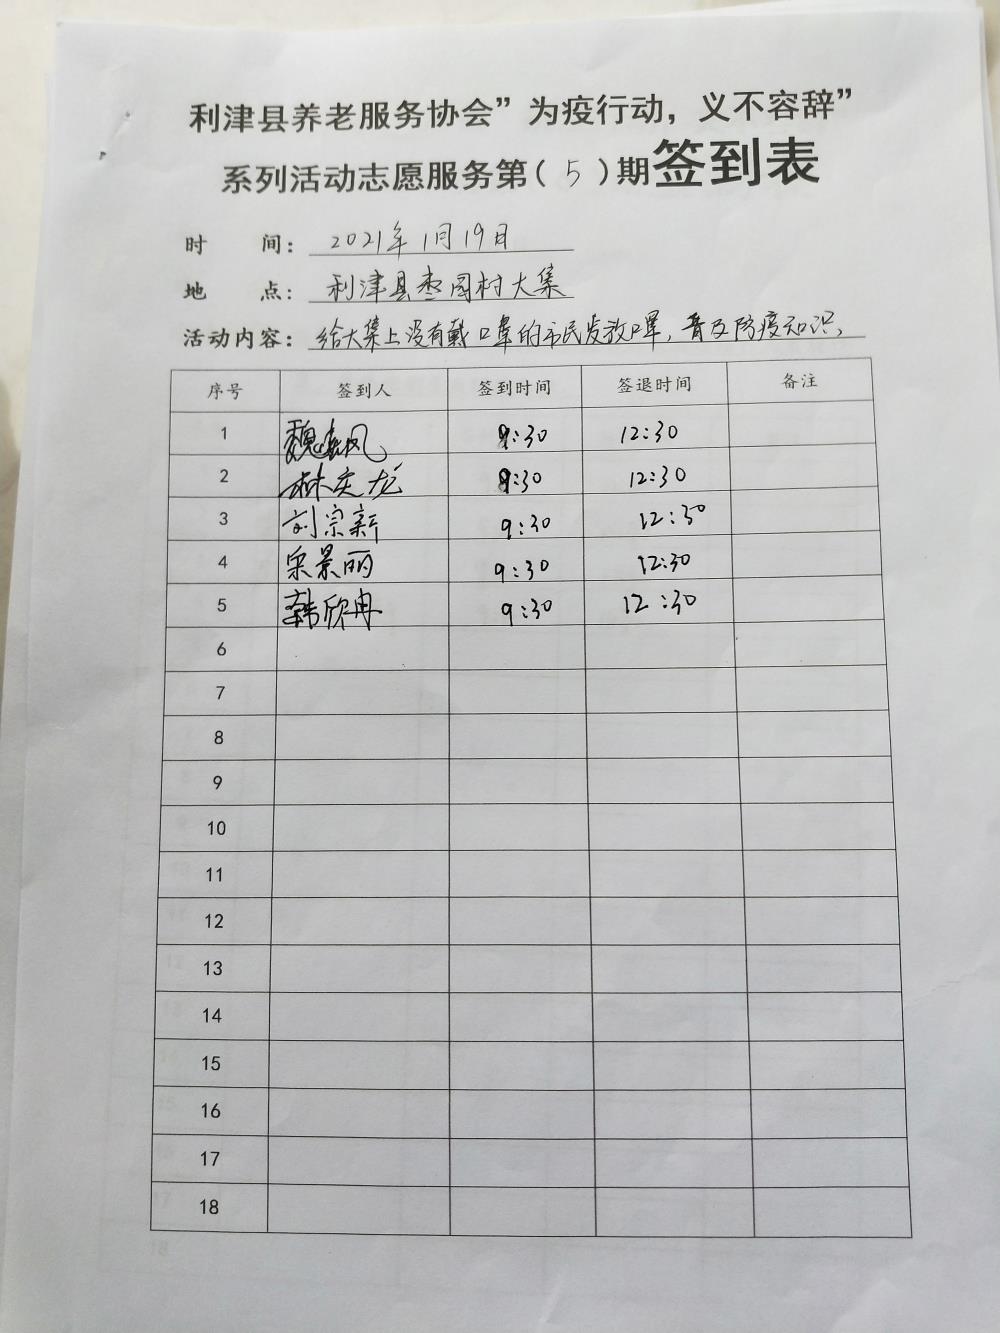 利津县养老服务协会”为疫行动，义不容辞”
系列活动志愿服务第（5）期签到表
时 间：2021年1月19日
地 点：利津县枣园村大集
活动内容：给大集上没有戴口罩的市民发放口罩，普及防疫知识，
序号 签到人 签到时间 签退时间 备注
1 魏春风 9:30 12:30
2 林庆龙 9:30 12:30
3 刘宗新 9:30 12:30
4 宋景丽 9:30 12:30
5 韩欣冉 9:30 12:30
6
7
8
9
10
11
12
13
14
15
16
17
18